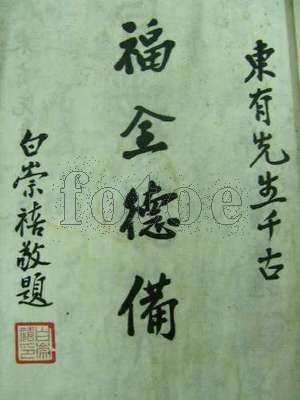 東有先生千古
福全德備
白崇禧敬題
白崇禧印
fotoe